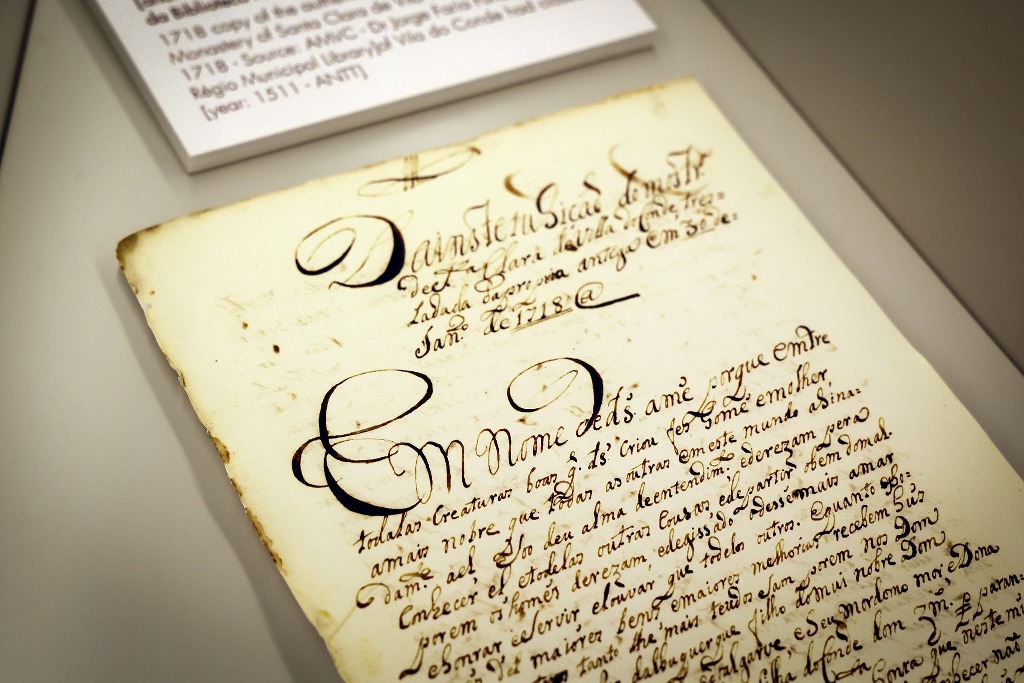 da Biblioteca
1718 copy of the
Monastery of Santa Clara de
1718 - Source: AMVC - Dr Jorge Faria
Régio Municipal Library) of Vila do Conde
[year: 1511 - ANTT]
Da instetusicaõ do mostr.
de ct.a Clara da Villa do Conde, tres=
ladada da propria antiga em 30 de=
Jan.o de 1718 @
Em Nome de ds. ame porque emtre
todalas creaturas boas q. ds criou fes home e molher,
amais nobre que todas as outras em este mundo asina=
dam.te ael. Esoo deu alma deentendim.to ederezam pera
Conhecer el etodelas outras Cousas edepartir obem domal.
porem os homes derezam, edegissado odesse mais amar
ehonrar eservir, elouvar que todolos outros. Equanto
maiores bens, emaiores melhorias recebem
tanto lhe mais teudos sam porem nos Dom
dalbuquerque filho domui nobre Dom
dalgarve eSeu mordomo mor, eDona
filha do Conde dom
que neste
conhecer não